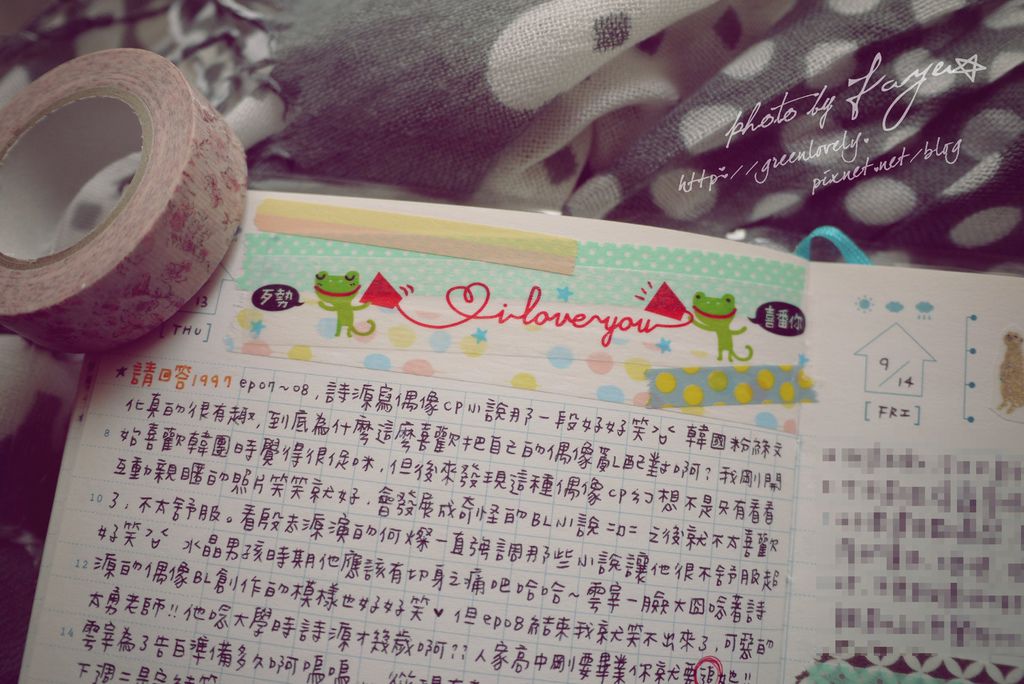 photo by Faye
http://greenlovely.
pixnet.net/blog
歹勢
i love you
喜番你
13
[THU]
9/14
[FRI]
★請回答1997 ep07~08,詩源寫偶像CP小說那一段好好笑 韓國粉絲文
化真的很有趣,到底為什麼這麼喜歡把自己的偶像亂配對啊?我剛開
8 始喜歡韓團時覺得很促咪,但後來發現這種偶像CP幻想不是只有看看
互動親匿的照片笑笑就好,會發展成奇怪的BL小說 =□= 之後就不太喜歡
10 了,不太舒服。看殷志源演的何燦一直強調那些小說讓他很不舒服超
好笑 水晶男孩時期他應該有切身之痛吧哈哈~ 雲宰一臉大囧唸著詩
12 源的偶像BL創作的模樣也好好笑♥ 但ep08結束我就笑不出來了,可惡的
太勇老師!!他唸大學時詩源才幾歲啊??人家高中剛要畢業你就要追她!!
14 雲宰為了告白準備多久啊嗚嗚